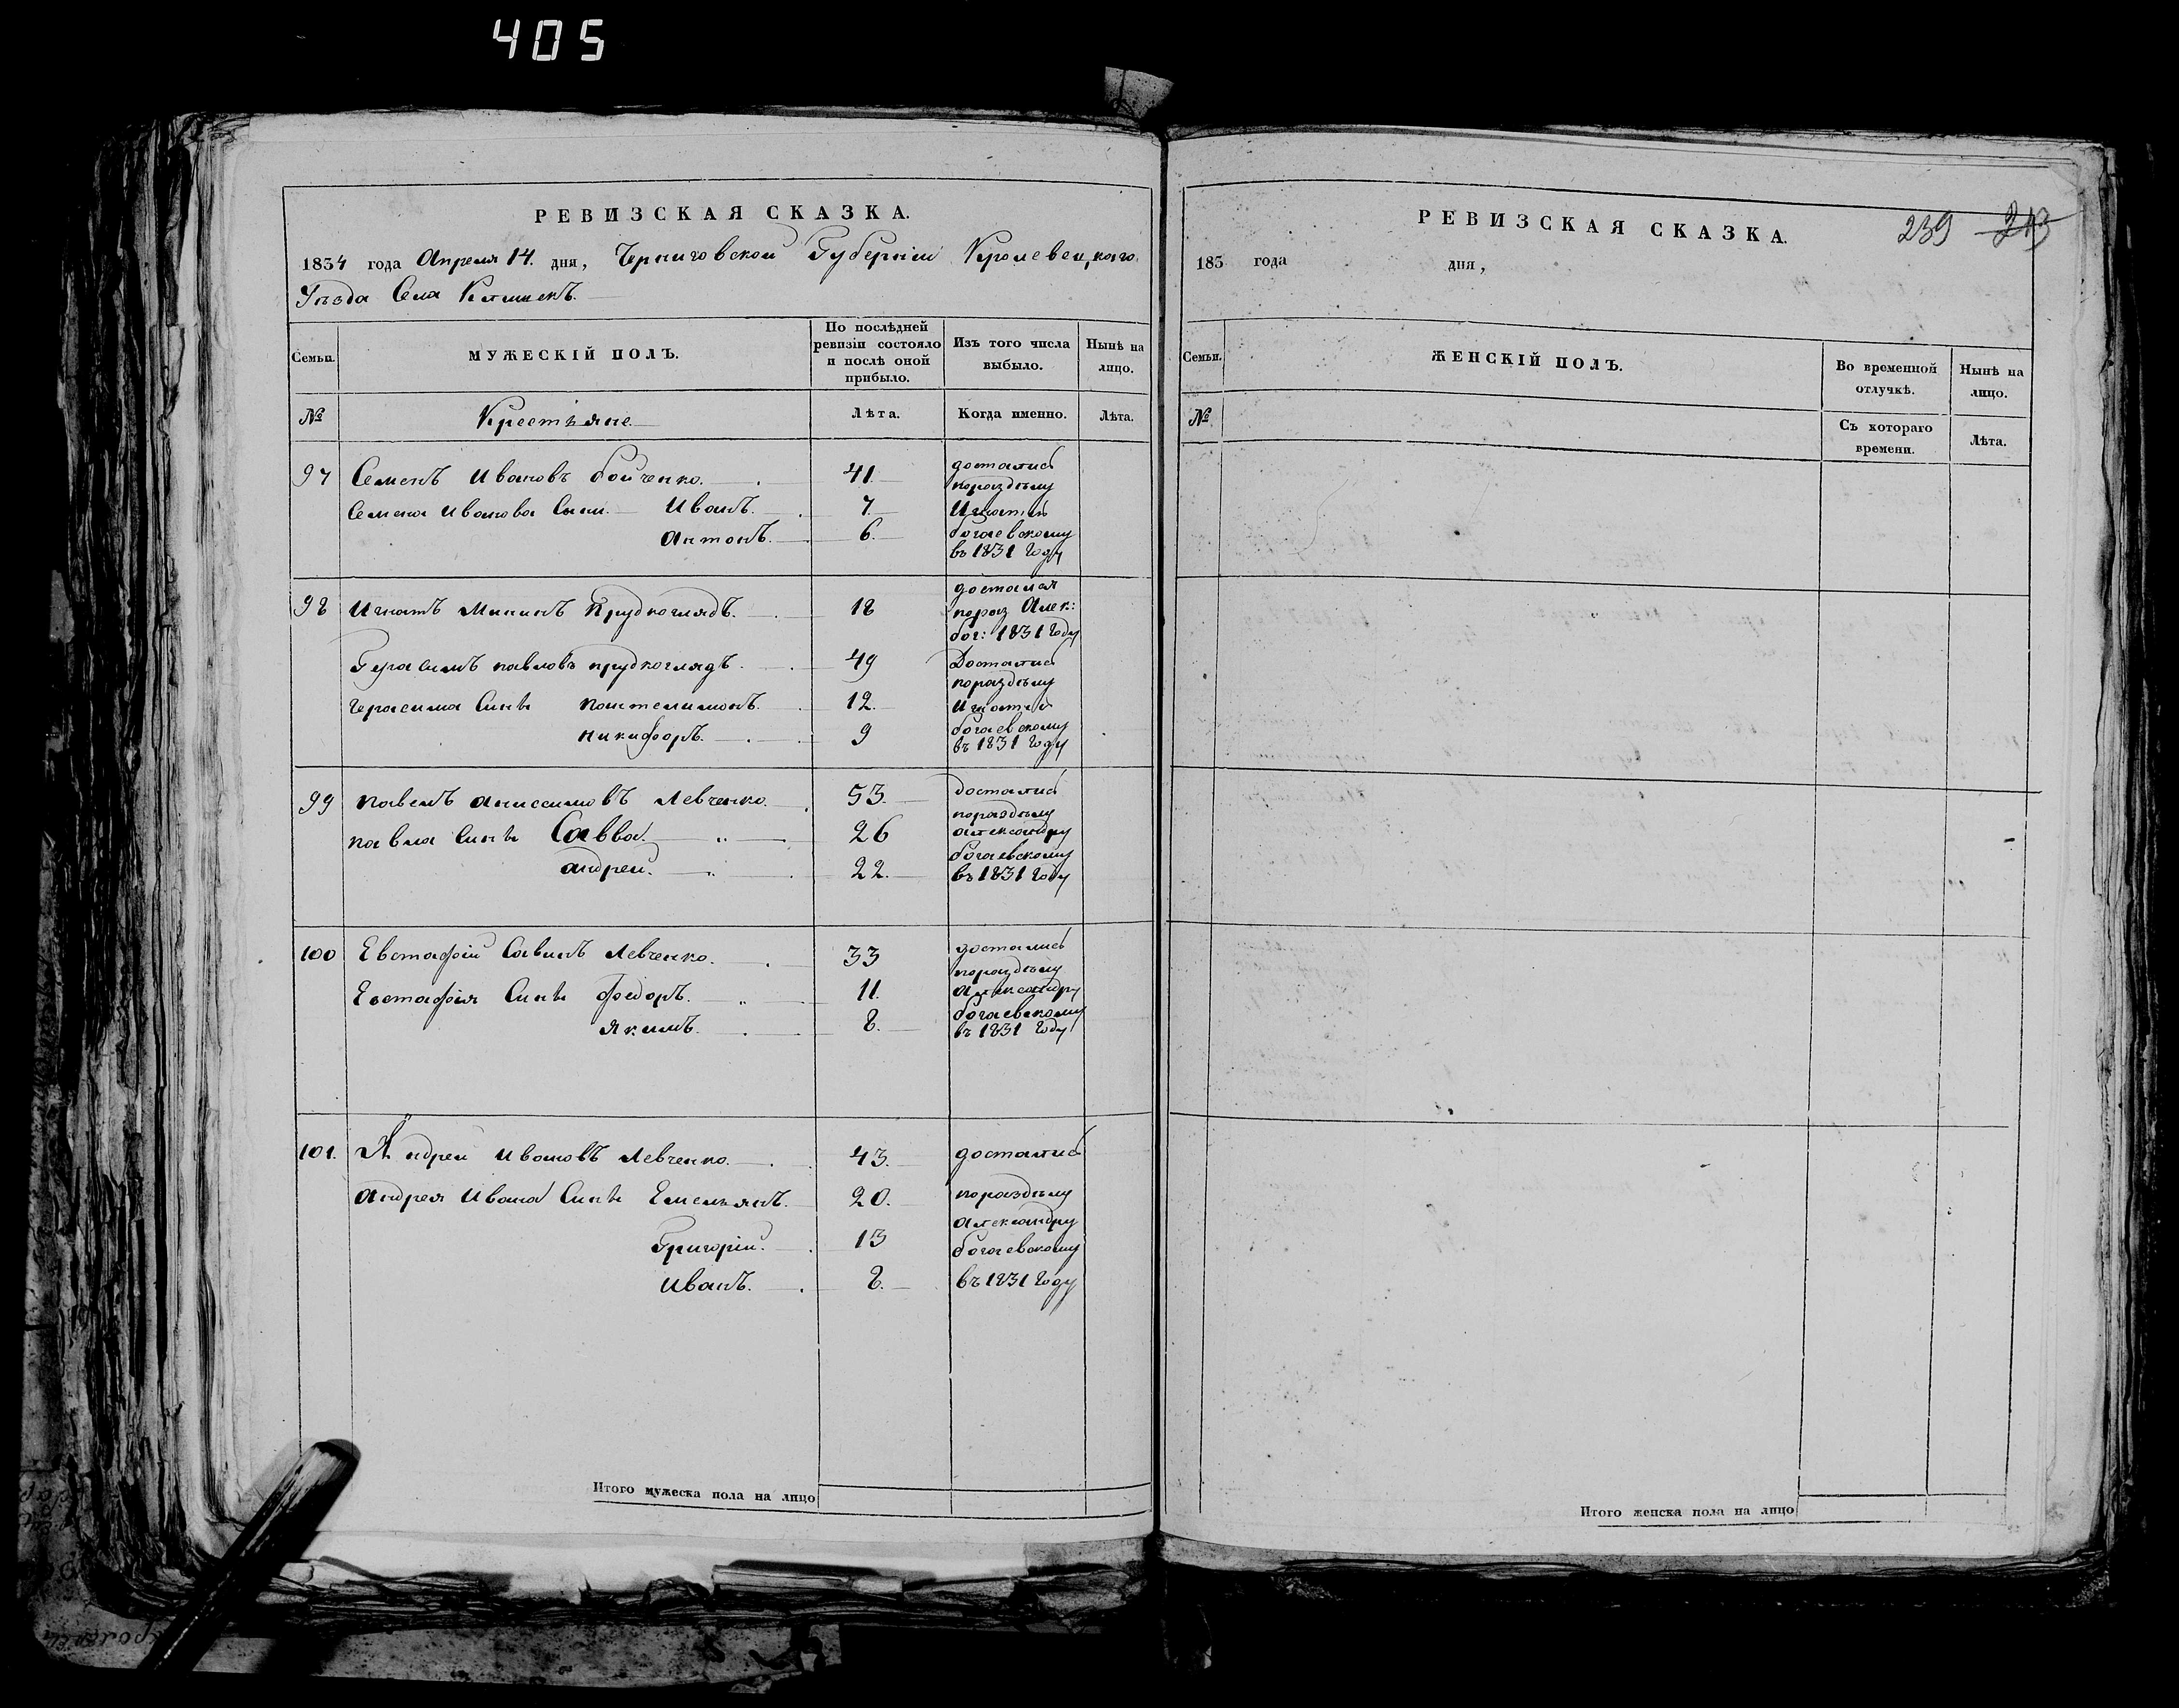 405
РЕВИЗСКАЯ СКАЗКА.
1834 года Апреля 14. дня, Черниговской Губерніи Кролевецкаго
Уѣзда Села Клишекъ.
Семьи.
МУЖЕСКІЙ ПОЛЪ.
По послѣдней ревизіи состояло и послѣ оной прибыло.
Изъ того числа выбыло.
Нынѣ на лицо.
№
Крестьяне
Лѣта.
Когда именно.
Лѣта.
97 Семенъ Ивановъ бойченко. 41 достались
поразделу
Семена Иванова Сыни. Иванъ. 7 Игнатію
Антонъ. 6. богаевскому
въ 1831 Году
98 Игнатъ Мининъ Прудкоглядъ. 18 достался
пораз Алек:
бог: 1831 Году
Герасимъ павловъ прудкоглядъ. 49 Достались
поразделу
герасима Сины пантелимонъ. 12. Игнатію
никифоръ. 9 богаевскому
въ 1831 Году
99 павелъ анисимовъ Левченко. 53. достались
поразделу
павла Сины Савва. 26 александру
андрей. 22. богаевскому
въ 1831 Году
100 Евстафій Савинъ Левченко. 33 достались
поразделу
Евстафія Сины федоръ. 11. александру
якимъ. 8. богаевскому
въ 1831 Году
101. Андрей Ивановъ Левченко. 43. достались
Андрея Ивана Сины Емельянъ. 20. поразделу
александру
Григорій. 13 богаевскому
Иванъ. 8. въ 1831 Году
Итого мужеска пола на лицо
РЕВИЗСКАЯ СКАЗКА.
239 213
183 года дня,
Семьи.
ЖЕНСКІЙ ПОЛЪ.
Во временной отлучкѣ.
Нынѣ на лицо.
№
Съ котораго времени.
Лѣта.
Итого женска пола на лицо